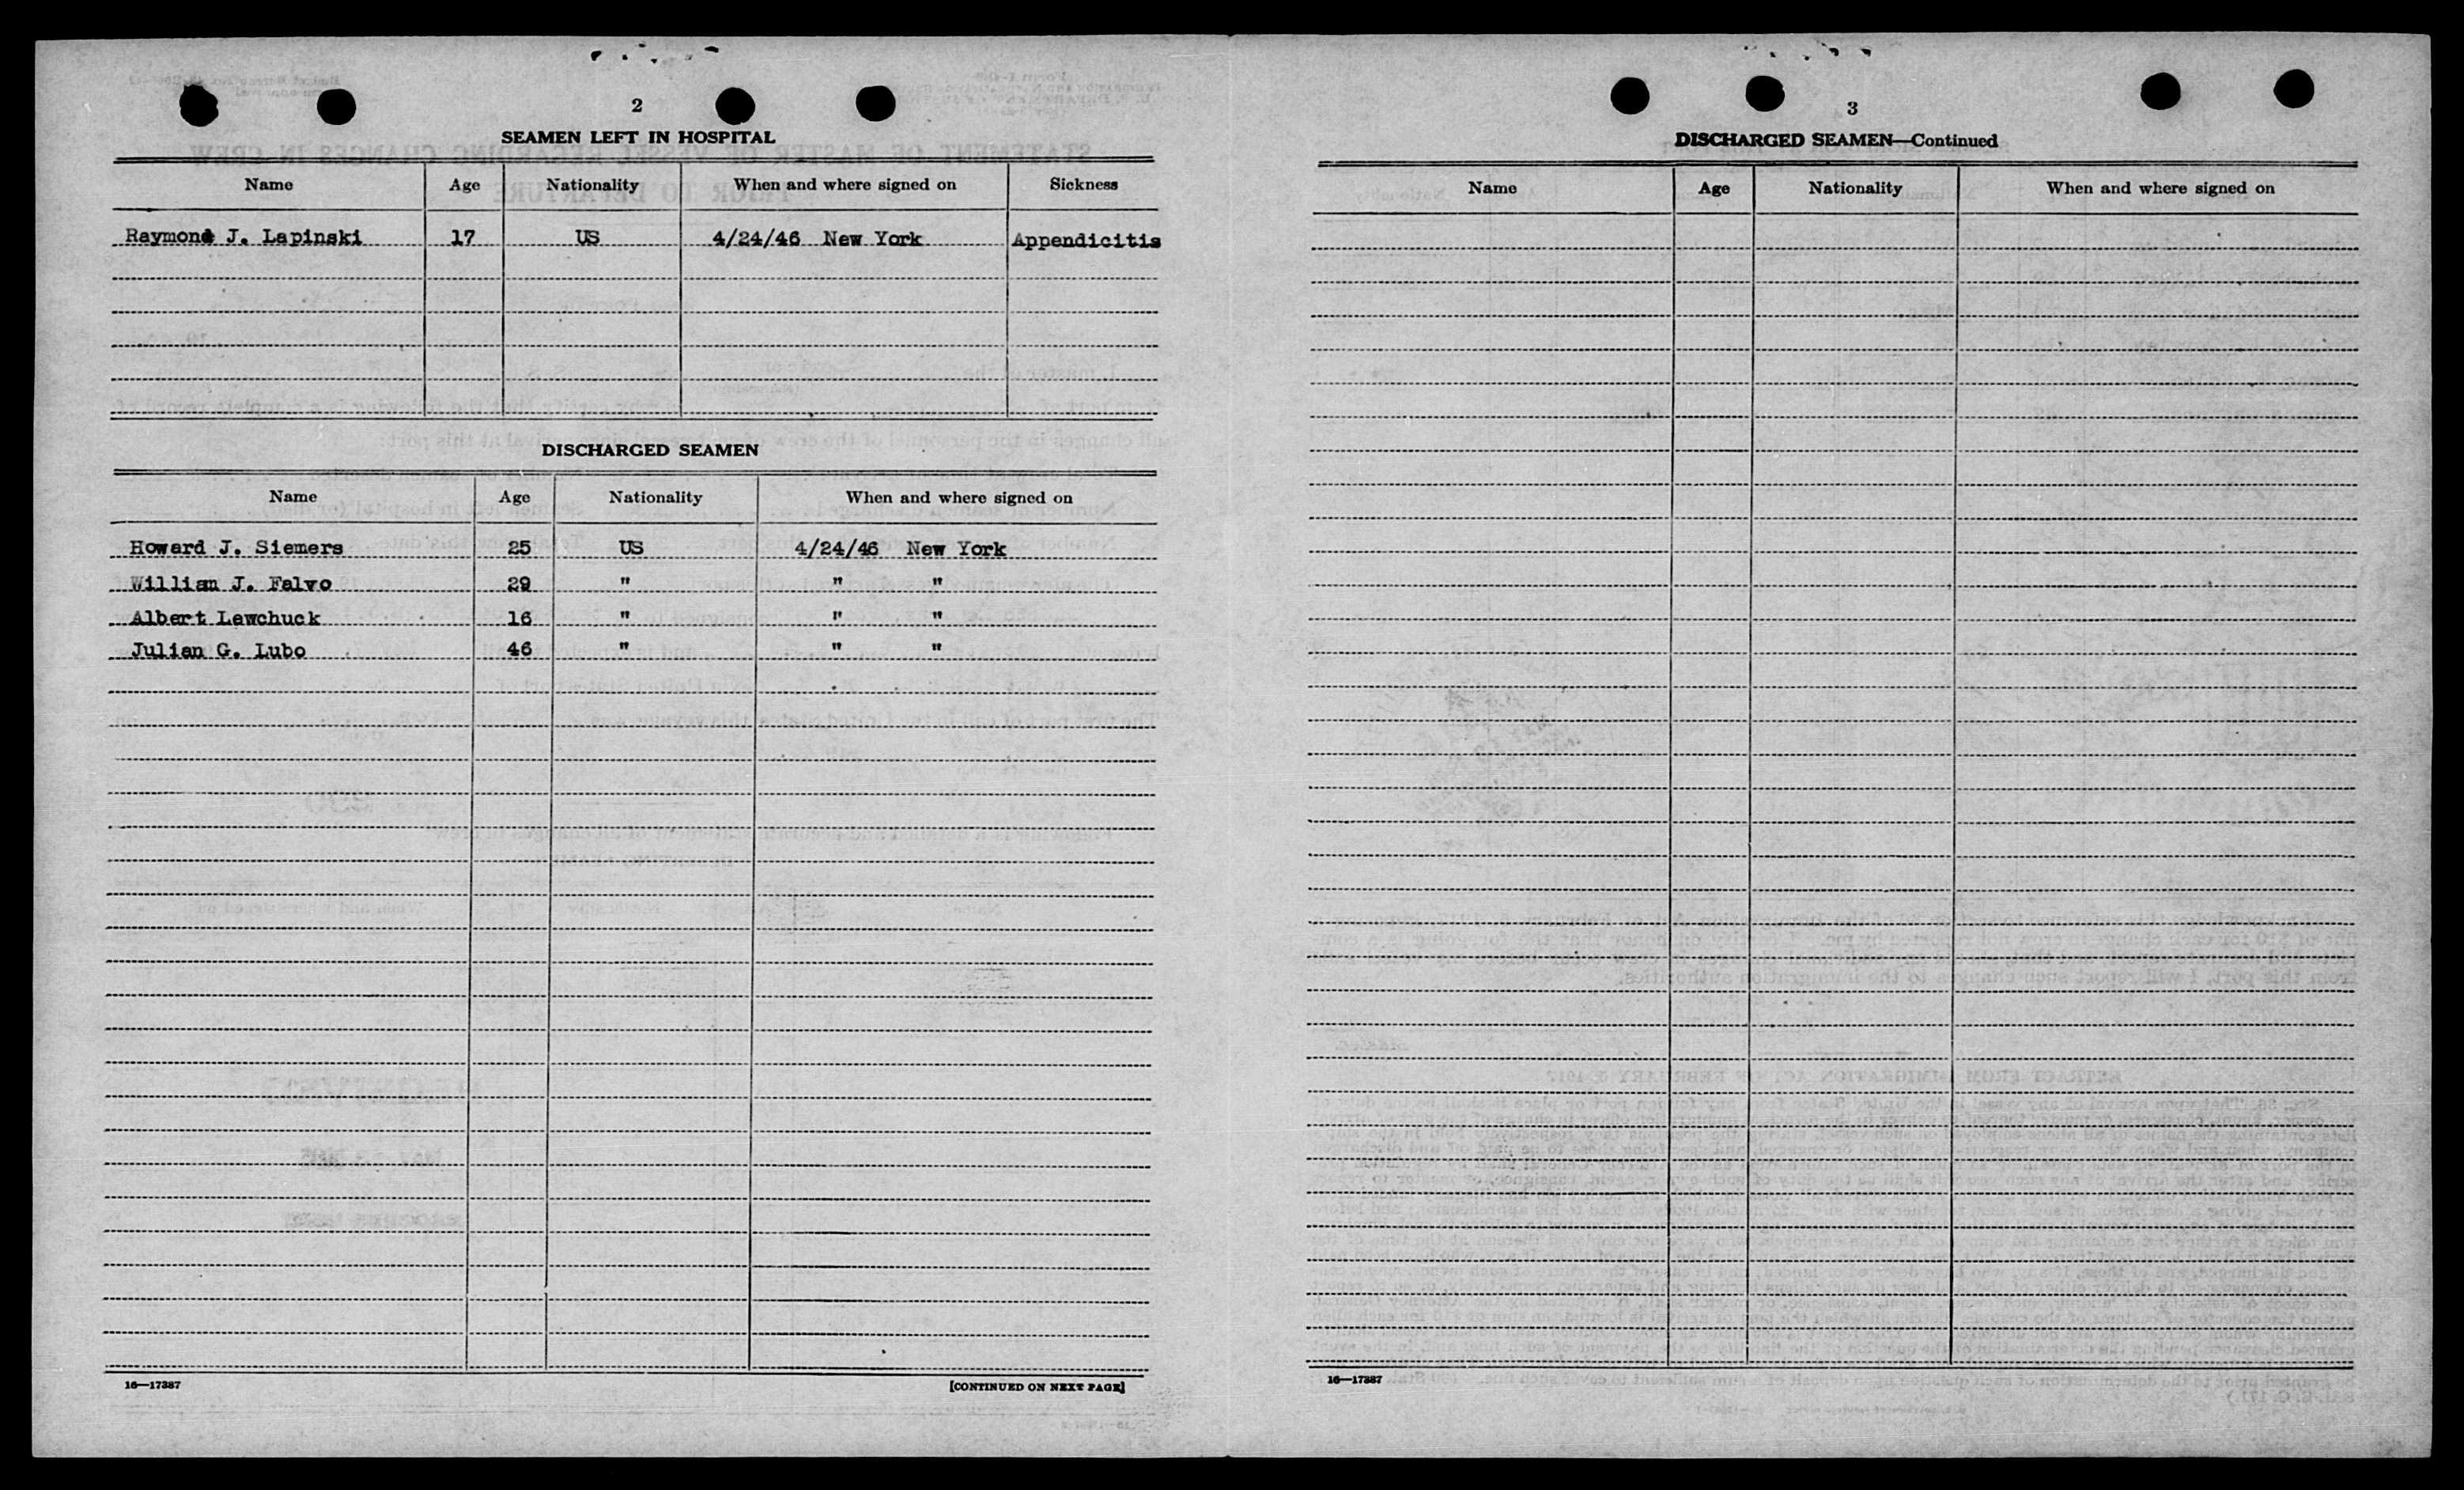 2
SEAMEN LEFT IN HOSPITAL
Name Age Nationality When and where signed on Sickness
Raymond J. Lapinski 17 US 4/24/46 New York Appendicitis
DISCHARGED SEAMEN
Name Age Nationality When and where signed on
Howard J. Siemers 25 US 4/24/46 New York
Willian J. Falvo 29 " " "
Albert Lewchuck 16 " " "
Julian G. Lubo 46 " " "
16—17387 [CONTINUED ON NEXT PAGE]
3
DISCHARGED SEAMEN—Continued
Name Age Nationality When and where signed on
16—17387